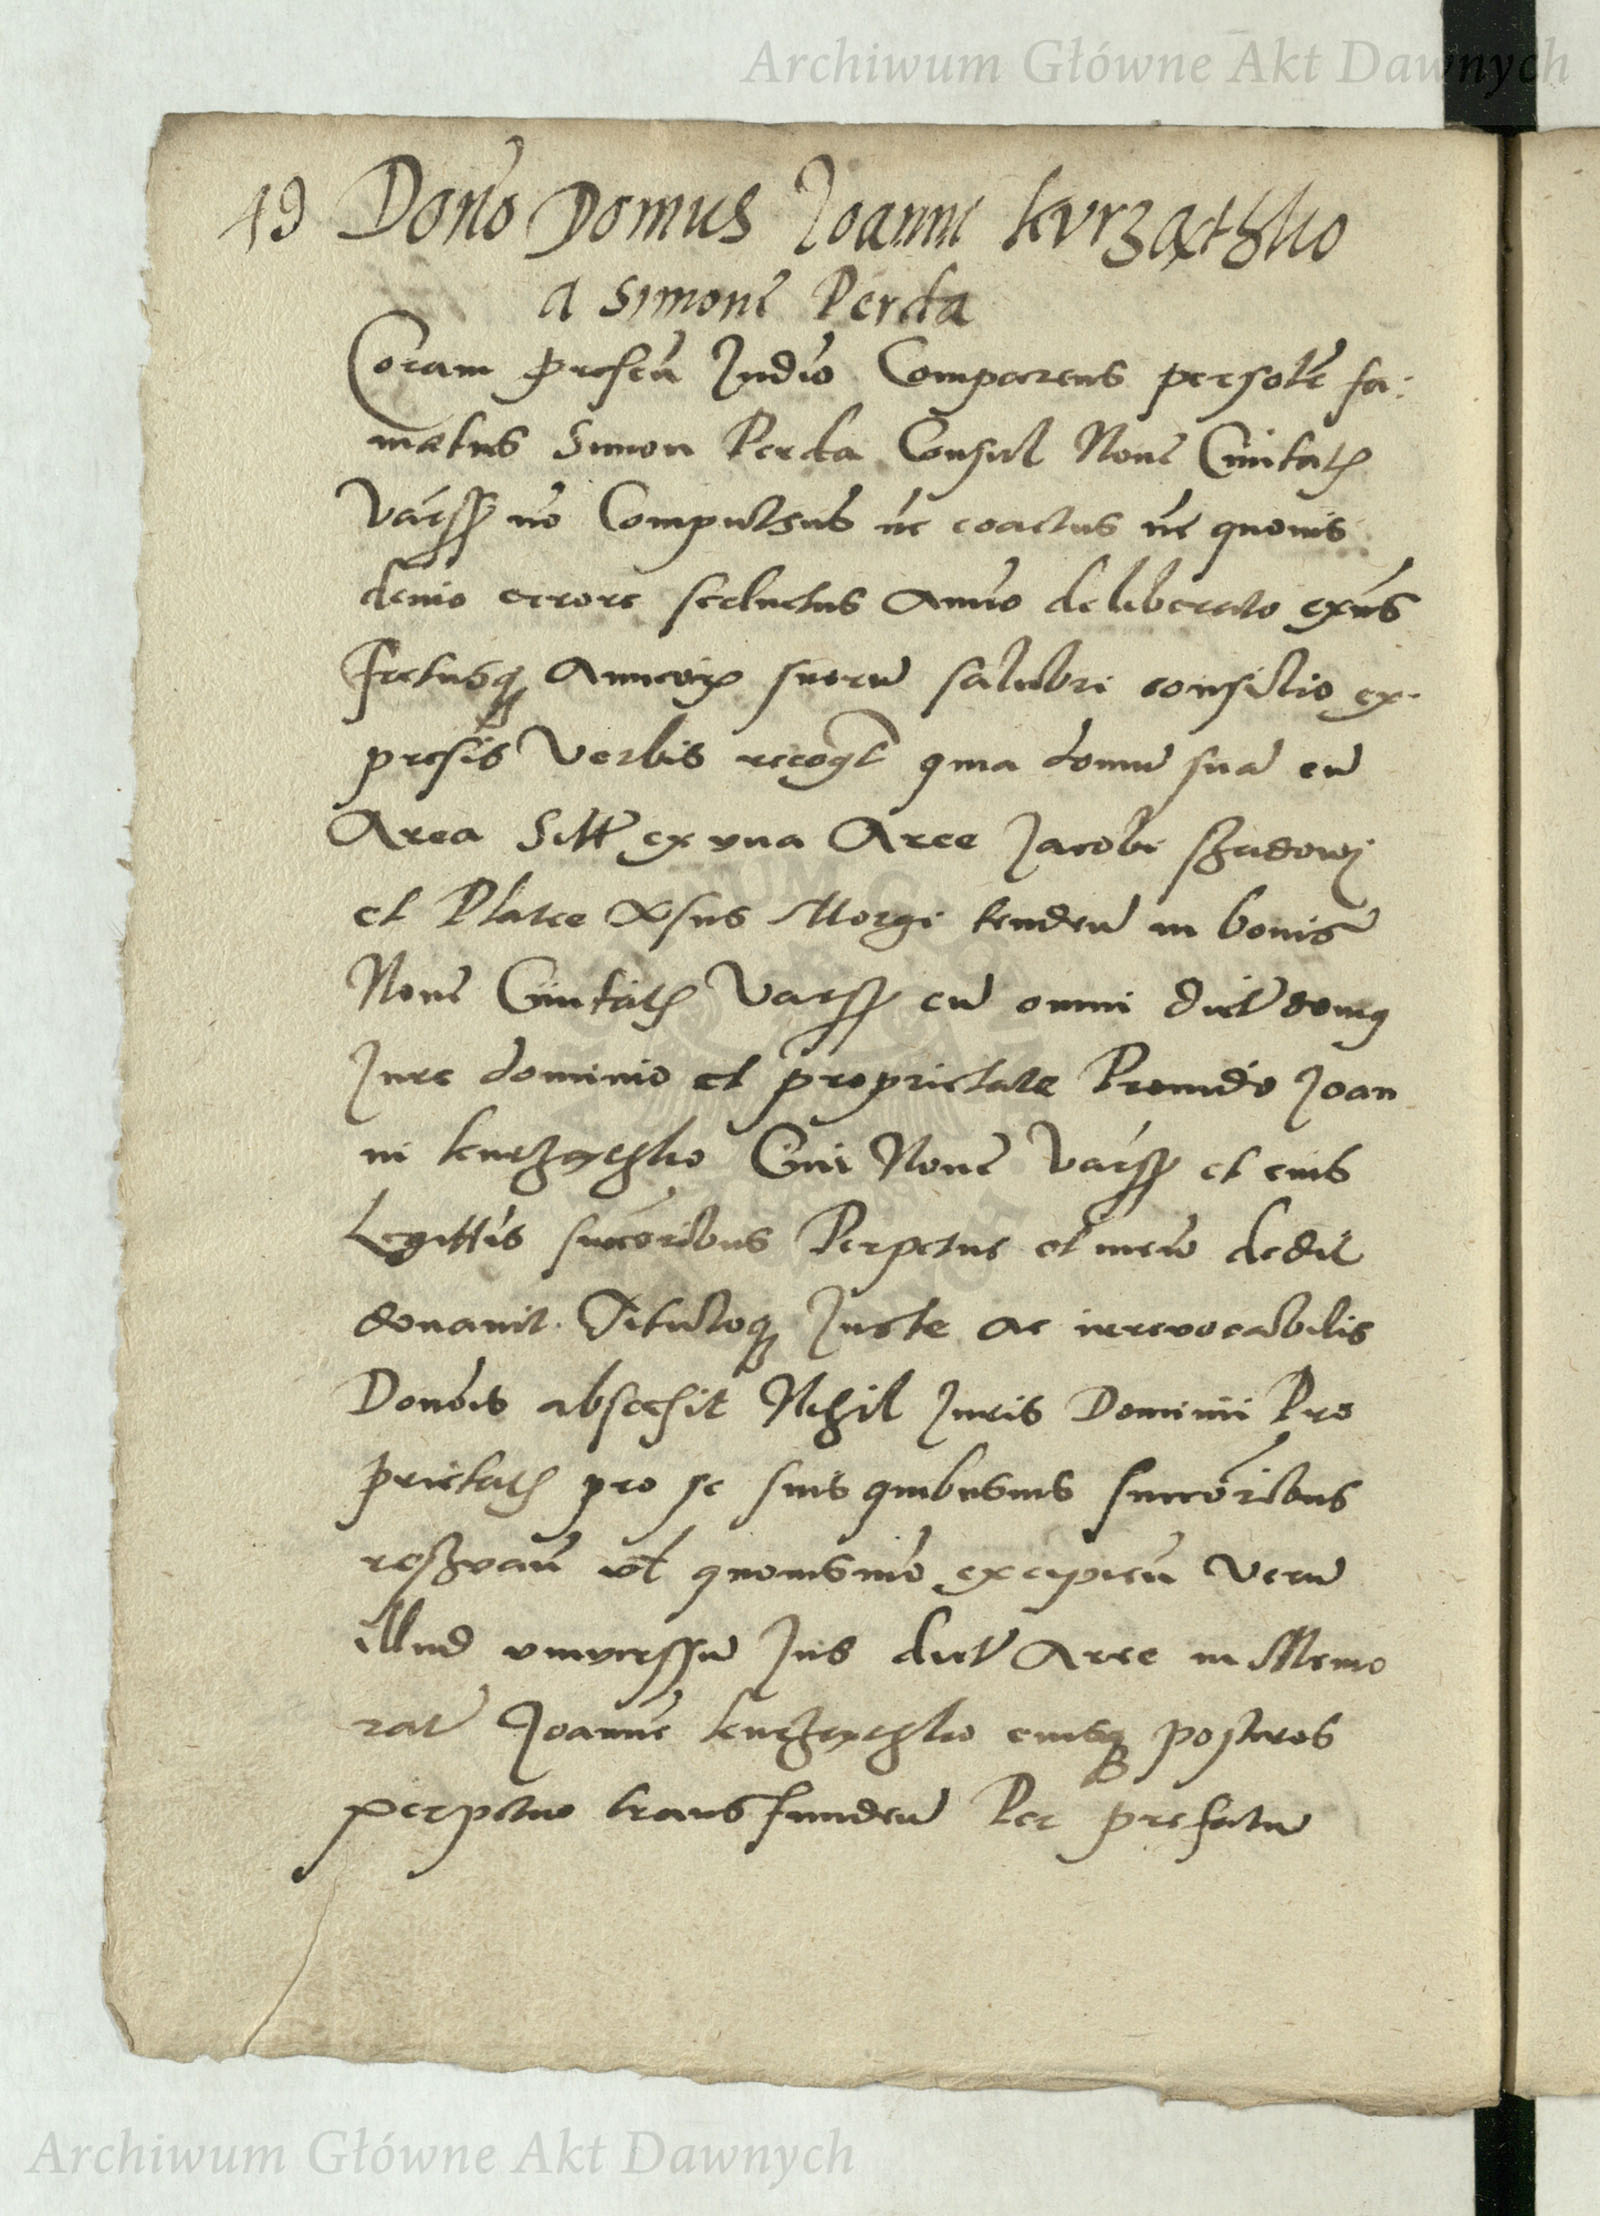 Archiwum Główne Akt Dawnych
19 Dono Domus Joanni kurząthko
a Simone Perda
Coram presen Judio Comparens persolr fa:
matus Simon Perda Consul Nove Civitatis
Varss no Compulsus nec coactus nec quovis
devio errore seductus animo deliberato exns
fretusq Amicor suoru salubri consilio ex-
presis verbis recogt quia domu sua cu
Area Sitt ex una Aree Jacobi
et Platee versus Morgi tenden in bonis
Nove Civitatis Varss cu omni dict domq
Jure dominio et proprietate Provido Joan
ni kurząthko Civi Nove Varss et eius
Legittis succoribus Perpetue et in evu dedit
donavit Tituloq Juste ac irrevocabilis
Donois abscesit Nihil Juris Dominii Pro
prietatis pro se suis quibusvis succoribus
reservan vel quovismo excipien veru
illud universsu Jus dict Aree in Memo
rat Joanne kurząthko eiusq posteros
perpetuo transfunden Per prefatu
Archiwum Główne Akt Dawnych